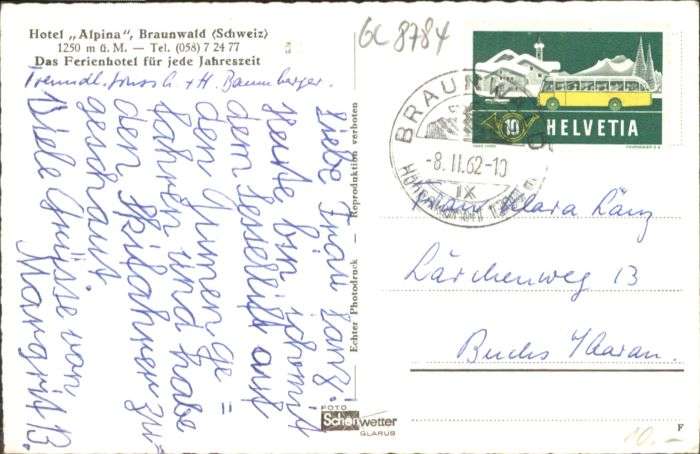 Hotel „Alpina", Braunwald (Schweiz)
1250 m ü. M. — Tel. (058) 7 24 77
Das Ferienhotel für jede Jahreszeit
Freundl. Gruss + H. Baumberger.
Liebe Frau Länz!
Heute bin ich mit
dem Sessellift auf
den Gumen ge=
fahren und habe
den Skifahrer zu=
geschaut
Viele Grüsse von
Margrit B.
Echter Photodruck — Reproduktion verboten
FOTO
Schönwetter
GLARUS
6c 8784
HELVETIA
10
BRAUNWALD
-8.II.62-10
IX
Höhenkurort
Frau Clara Länz
Lärchenweg 13
Buchs / Aarau.
F
10.-